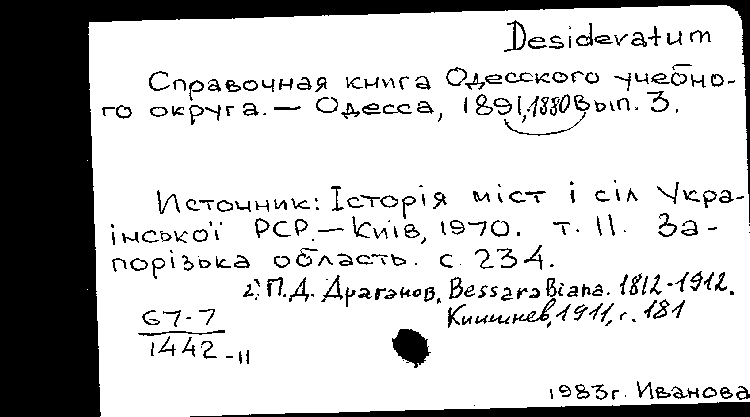 Desideratum
Справочная книга Одесского учебно-
го округа. — Одесса, 1891,1880 Вып. 3.
Источник: Історія міст і сіл Укра-
інської РСР. — Київ, 1970. т. 11. За-
порізька область. с. 234.
2) П.Д. Драганов. Bessarabiana. 1812-1912.
Кишинев, 1911, с. 181
67-7
1442-11
1983г. Иванова